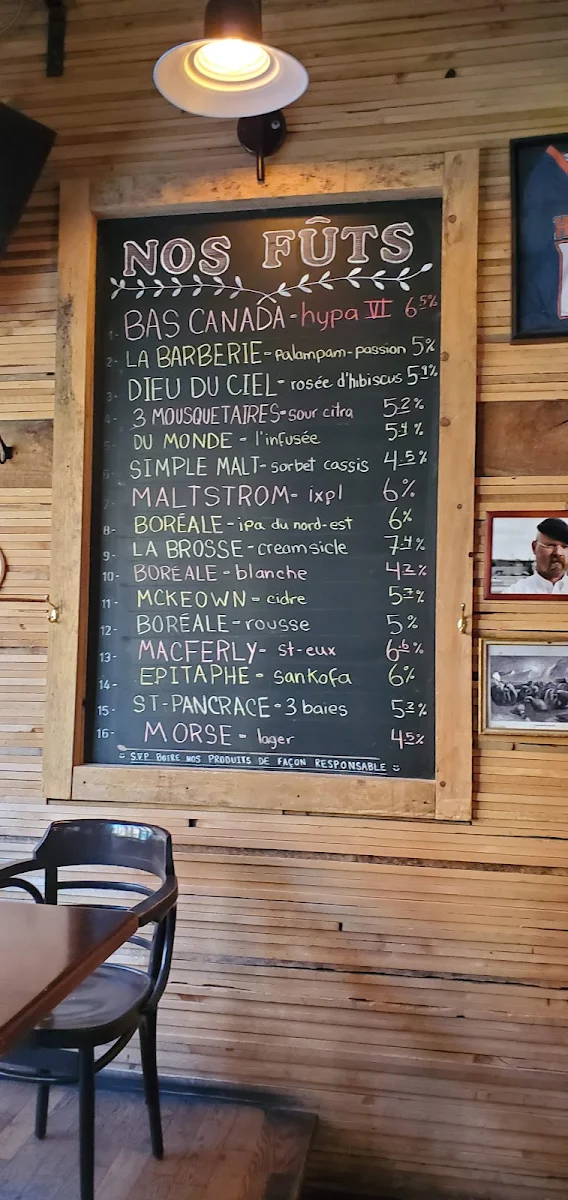 NOS FÛTS
1- BAS CANADA - hypa VI 6.5%
2- LA BARBERIE - Palampam-passion 5%
3- DIEU DU CIEL - rosée d'hibiscus 5.9%
4- 3 MOUSQUETAIRES - sour citra 5.2%
5- DU MONDE - l'infusée 5.4%
6- SIMPLE MALT - sorbet cassis 4.5%
7- MALTSTROM - ixpl 6%
8- BORÉALE - ipa du nord-est 6%
9- LA BROSSE - creamsicle 7.4%
10- BORÉALE - blanche 4.2%
11- MCKEOWN - cidre 5.7%
12- BORÉALE - rousse 5%
13- MACFERLY - st-eux 6.6%
14- EPITAPHE - sankofa 6%
15- ST-PANCRACE - 3 baies 5.3%
16- MORSE - lager 4.5%
S.V.P BOIRE NOS PRODUITS DE FAÇON RESPONSABLE